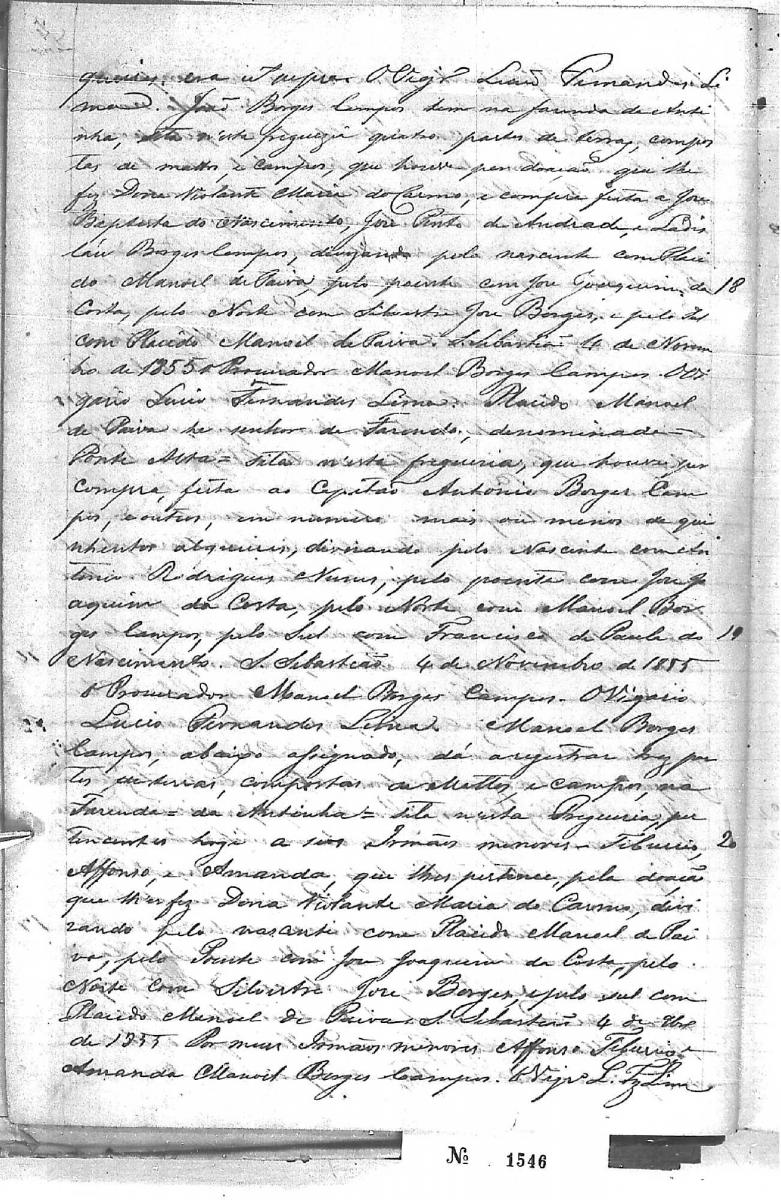 queires, era ut supra. O Vigrº Lucio Fernandes Li
ma. João Borges Campos tem na fazenda de Anti
nha, sita n'esta freguezia quatro partes de terras, compos
tas de mattos e campos, que houve por doação que lhe
fez Dona Violante Maria do Carmo, e compra feita a José
Baptista do Nascimento, José Pinto de Andrade, e Ladis
láu Borges Campos, divizando pelo nascente com Placi
do Manoel de Paiva, pelo poente com José Joaquim da 18
Costa, pelo Norte com Silvestre José Borges, e pelo Sul
com Placido Manoel de Paiva. S. Sebastião 4 de Novem
bro de 1855 O Procurador Manoel Borges Campos. O Vi
gario Lucio Fernandes Lima. Placido Manoel
de Paiva he senhor de Fazenda, denominada =
Ponte Alta = sita n'esta freguezia, que houve por
compra, feita ao Capitão Antonio Borges Cam
pos, e outros, em numero mais ou menos de qui
nhentos alqueires, divizando pelo Nascente com An
tonio Rodrigues Nunes, pelo poente com José Jo
aquim da Costa, pelo Norte com Manoel Bor
ges Campos, pelo Sul com Francisco de Paula do 19
Nascimento. S. Sebastião 4 de Novembro de 1855
O Procurador Manoel Borges Campos. O Vigario
Lucio Fernandes Lima Manoel Borges
Campos, abaixo assignado, dá a registrar trez par
tes de terras, compostas de Mattos e campos, na
Fazenda = da Antinha = sita n'esta Freguezia, per
tencentes hoje a seos Irmãos menores - Tiburcio, 20
Affonso, e Amanda, que lhes pertence, pela doação
que lhes fez Dona Violante Maria do Carmo, divi
zando pelo nascente com Placido Manoel de Pai
va, pelo Poente com José Joaquim da Costa, pelo
Norte com Silvestre José Borges, e pelo sul com
Placido Manoel de Paiva. S. Sebastião 4 de
de 1855 Por meus Irmãos menores Affonso Tiburcio e
Amanda Manoel Borges Campos. O Vigrº L. Fz Lima
Nº 1546